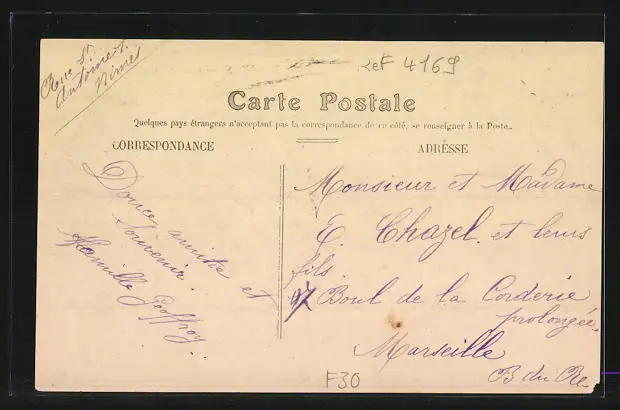 Rue St
Antoine 1.
Nimes
Ref 4169
Carte Postale
Quelques pays étrangers n'acceptant pas la correspondance de ce côté, se renseigner à la Poste.
CORRESPONDANCE
ADRESSE
Douce amitié et
Souvenir.
Famille Geoffroy.
Monsieur et Madame
E. Chazel. et leurs
fils.
Boul de la Corderie
prolongée.
Marseille
B du Rh
F30